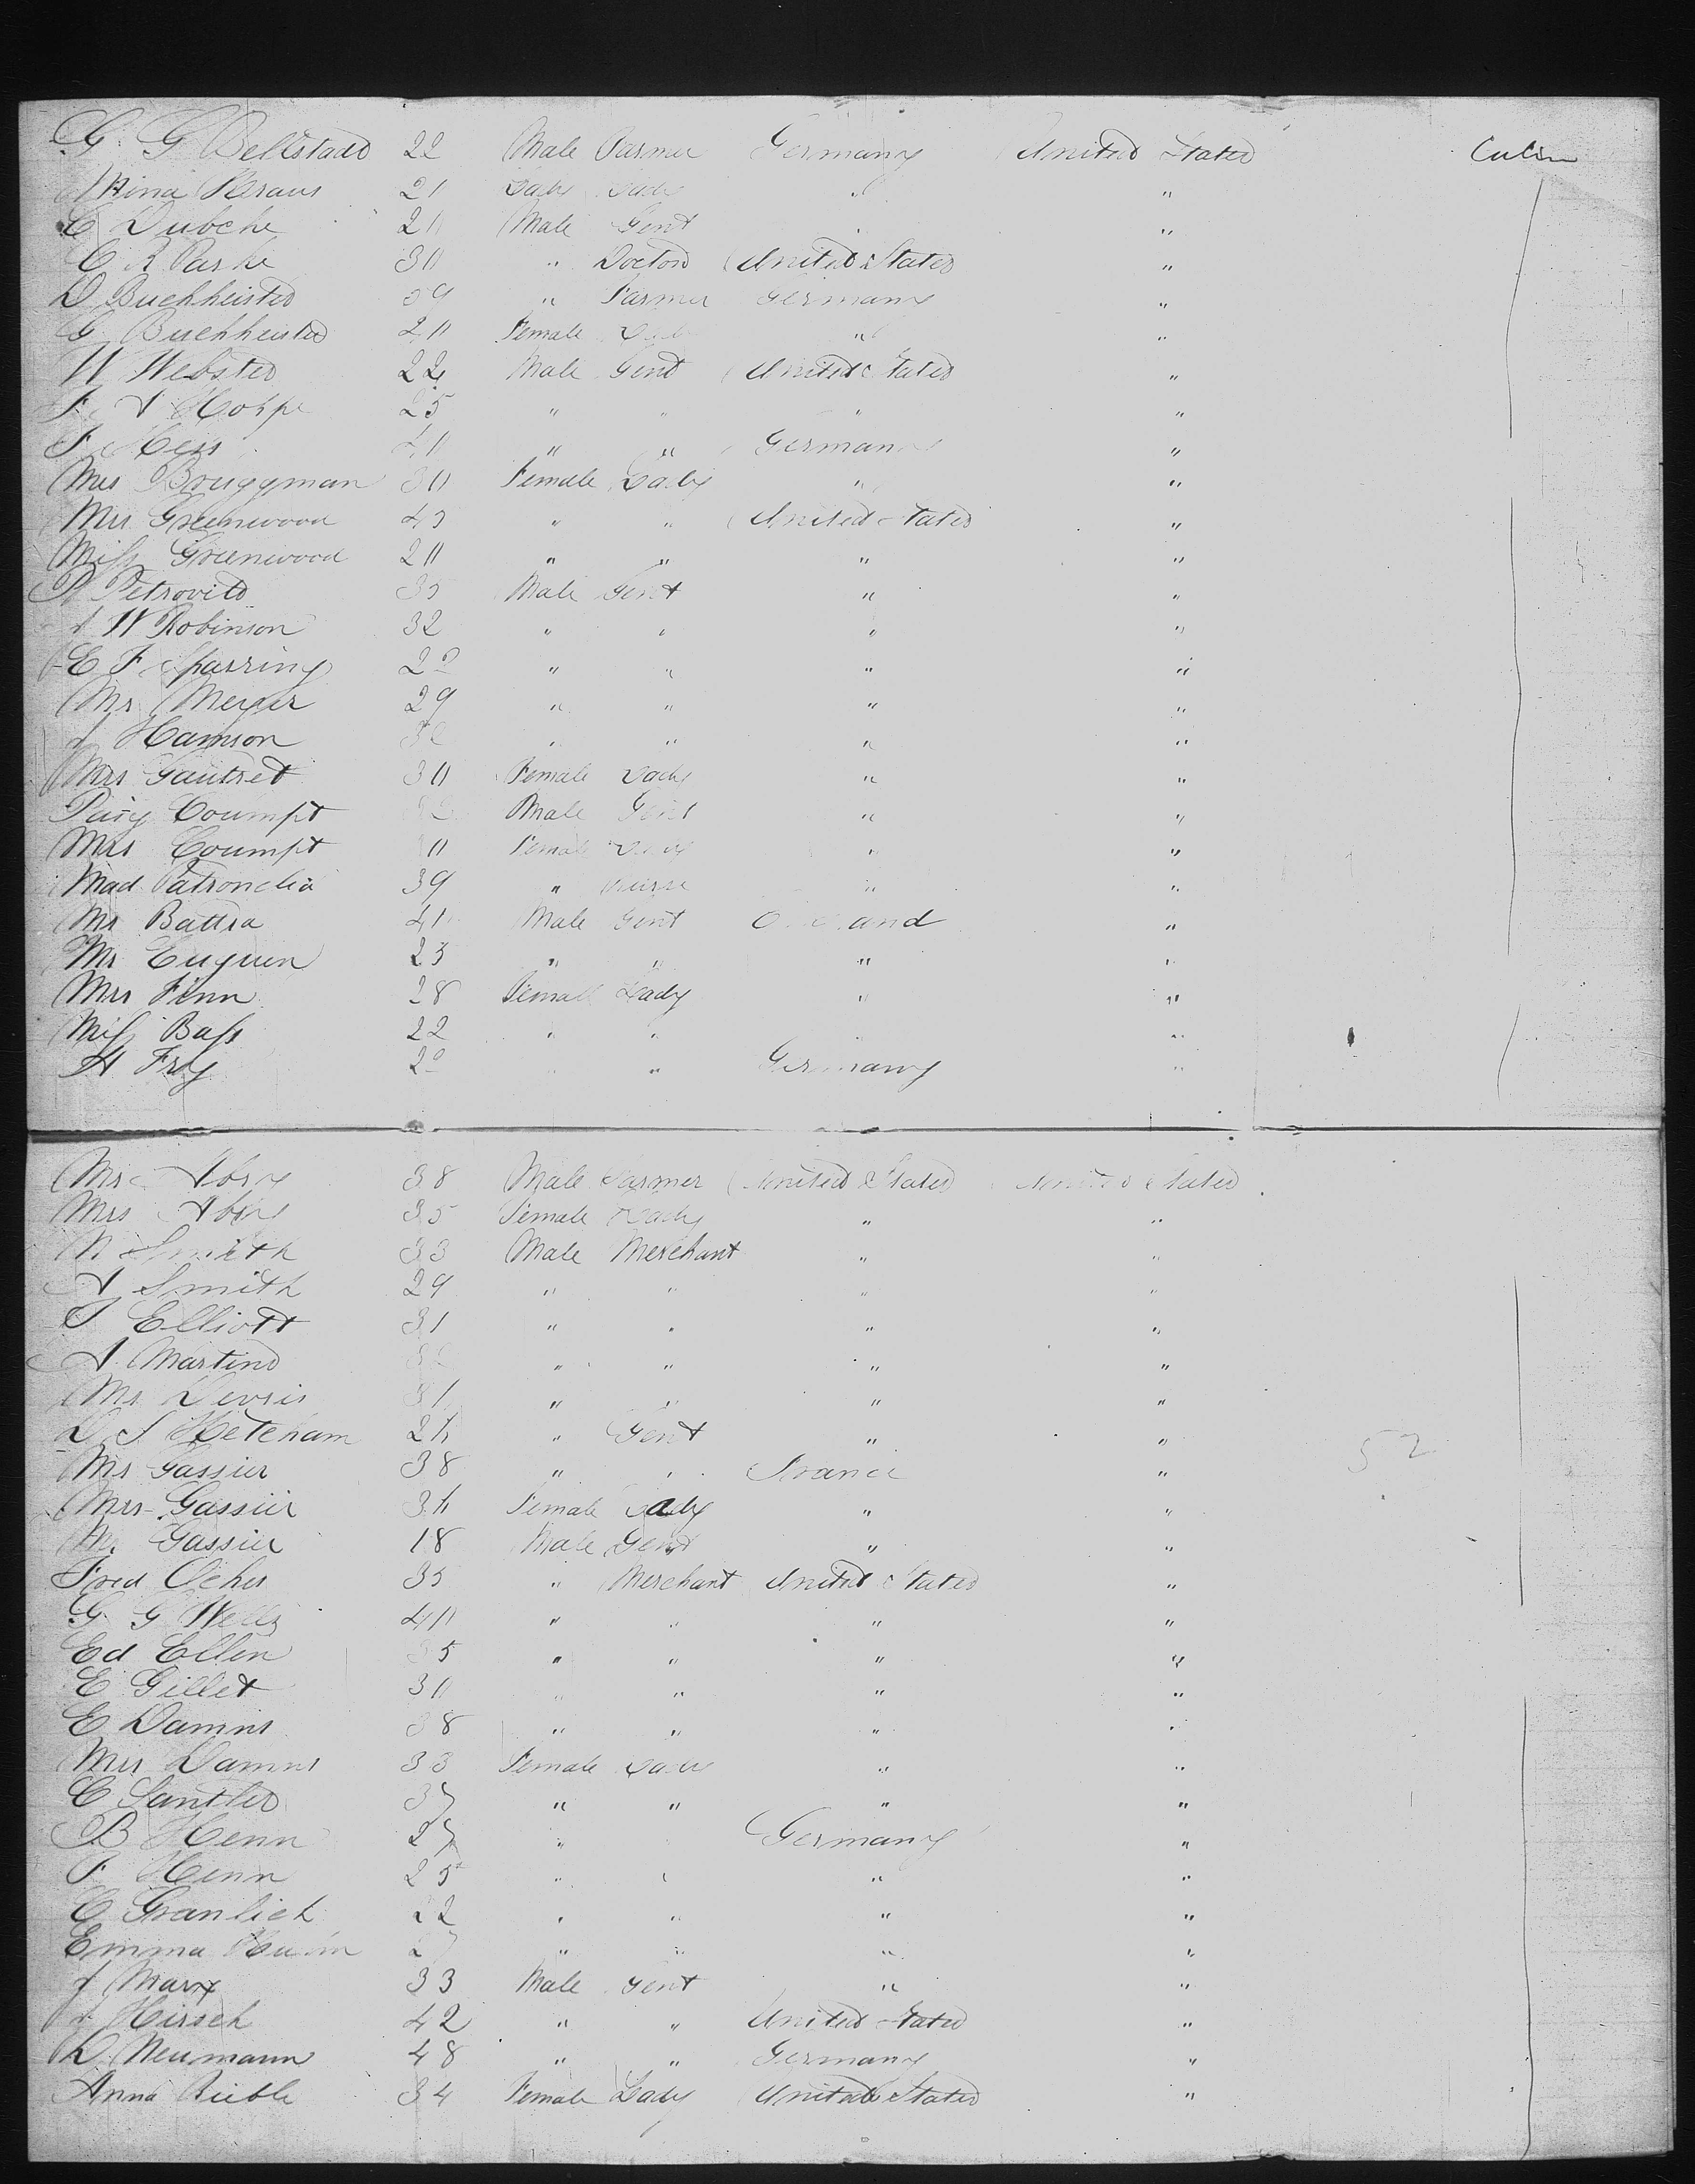 G. G Bellstadt 22 Male Farmer Germany United States Cabin
Mina Kraus 21 Lady Lady " "
E Dubcke 20 Male Gent " "
C R Parke 30 " Doctor United States "
D Buchheister 59 " Farmer Germany "
G Buchheister 20 Female Lady " "
W Webster 22 Male Gent United States "
F. A Hoppe 25 " " " "
F Hess 40 " " Germany "
Mrs Bruggman 30 Female Lady " "
Mrs Greenwood 45 " " United States "
Miss Greenwood 20 " " " "
P Petrovitd 35 Male Gent " "
J W Robinson 32 " " " "
E F Sparring 22 " " " "
Mr Meyer 29 " " " "
J Hamson " " " "
Mrs Gautret 30 Female Lady " "
Coumpt Male Gent " "
Mrs Coumpt Female Lady " "
Mad Patronelia 39 " Nurse " "
Mr Battra 41 Male Gent "
Mr Euguen 23 " " " "
Mrs Finn 28 Female Lady " "
Miss Bass 22 " " " "
H Frey " " Germany "
Mr Abry 38 Male Farmer United States United States
Mrs Abry 35 Female Lady " "
N Smith 33 Male Merchant " "
A Smith 29 " " " "
T Elliott 31 " " " "
A. Martind " " " "
Mr Devris 31 " " " "
D. S Ketcham 24 " Gent " " 52
Mr Gassier 38 " " France "
Mrs Gassier 34 Female Lady " "
M. Gassier 18 Male Gent " "
Fred Ocher 35 " Merchant United States "
G. G Wells 40 " " " "
Ed Ellen 35 " " " "
E Gillet 30 " " " "
E Damns 38 " " " "
Mrs Damns 33 Female Lady " "
C Santler 37 " " " "
B Henn 27 " Germany "
F Henn 25 " " " "
C Granlick 22 " " " "
Emma 27 " " " "
J Marx 33 Male Gent " "
J. Hirsch 42 " " United States "
D. Neumann 48 " " Germany "
Anna Rieble 34 Female Lady United States "